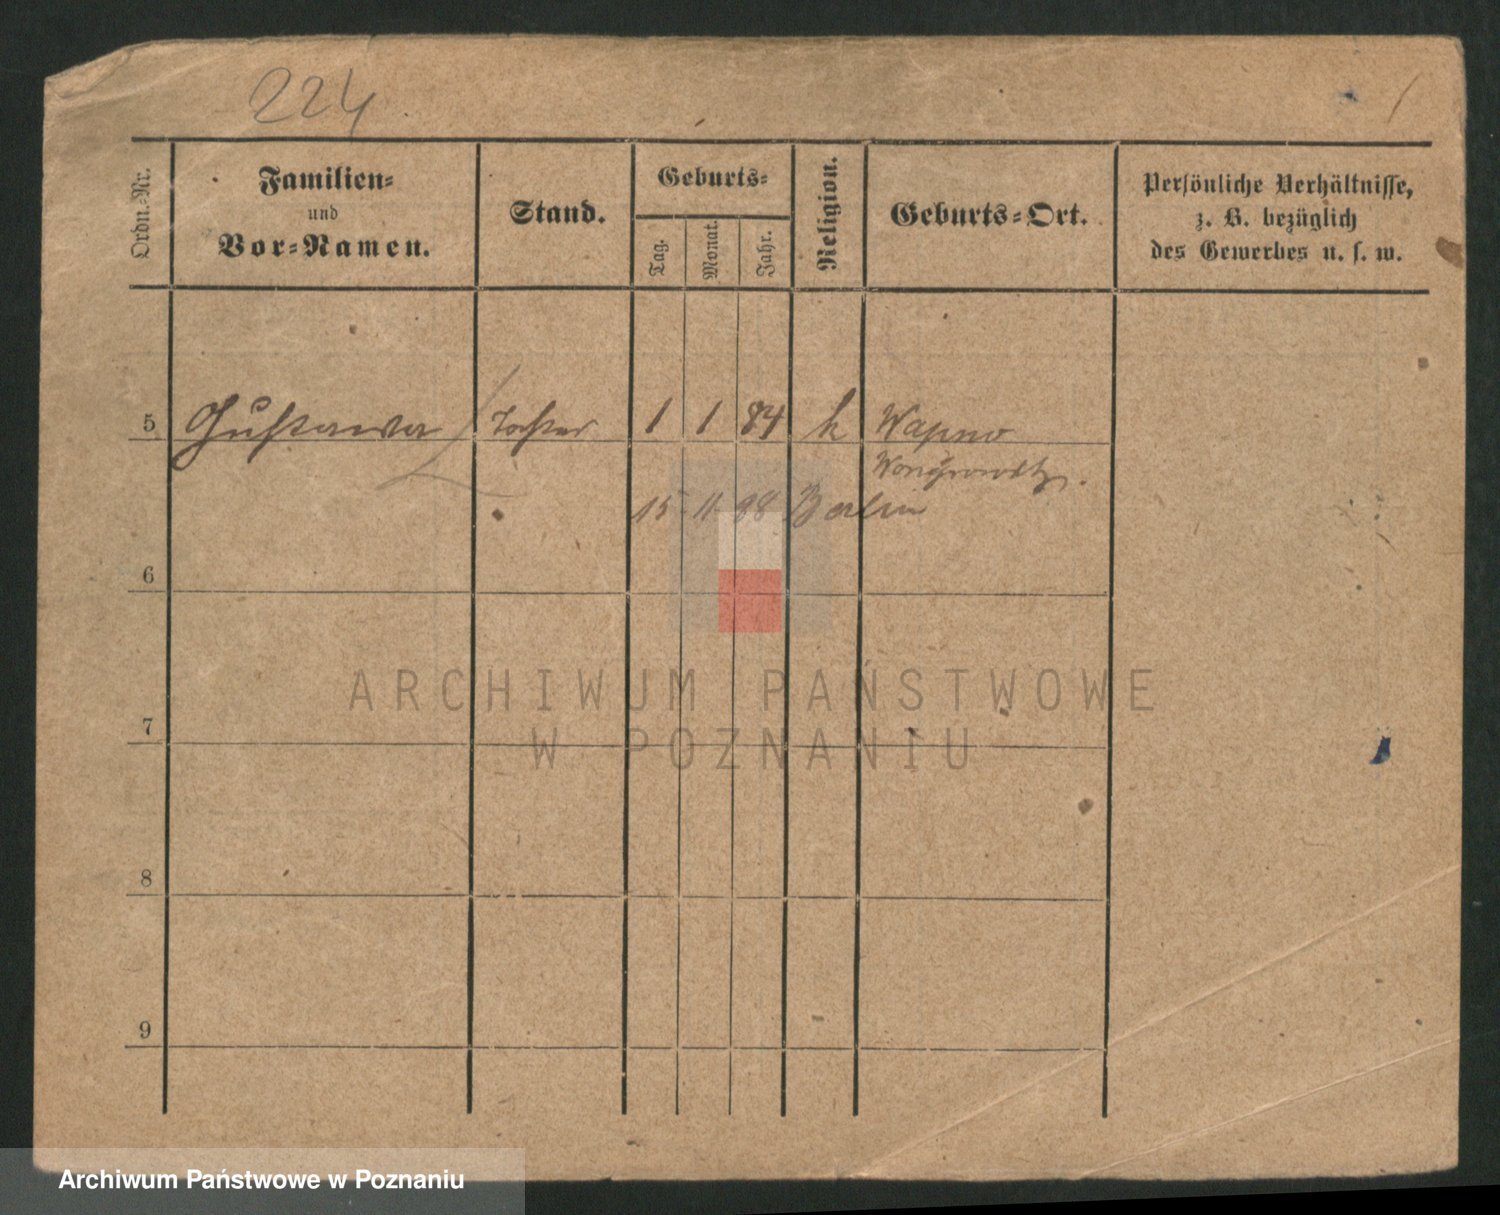 224
Ordn.-Nr.
Familien-
und
Vor-Namen.
Stand.
Geburts-
Tag.
Monat.
Jahr.
Religion.
Geburts-Ort.
Persönliche Verhältnisse,
z. B. bezüglich
des Gewerbes u. s. w.
5 Gustawa Tochter 1 1 84 k Wapno
Wongrowitz.
15 11 98 Berlin
6
ARCHIWUM PAŃSTWOWE
W POZNANIU
7
8
9
Archiwum Państwowe w Poznaniu